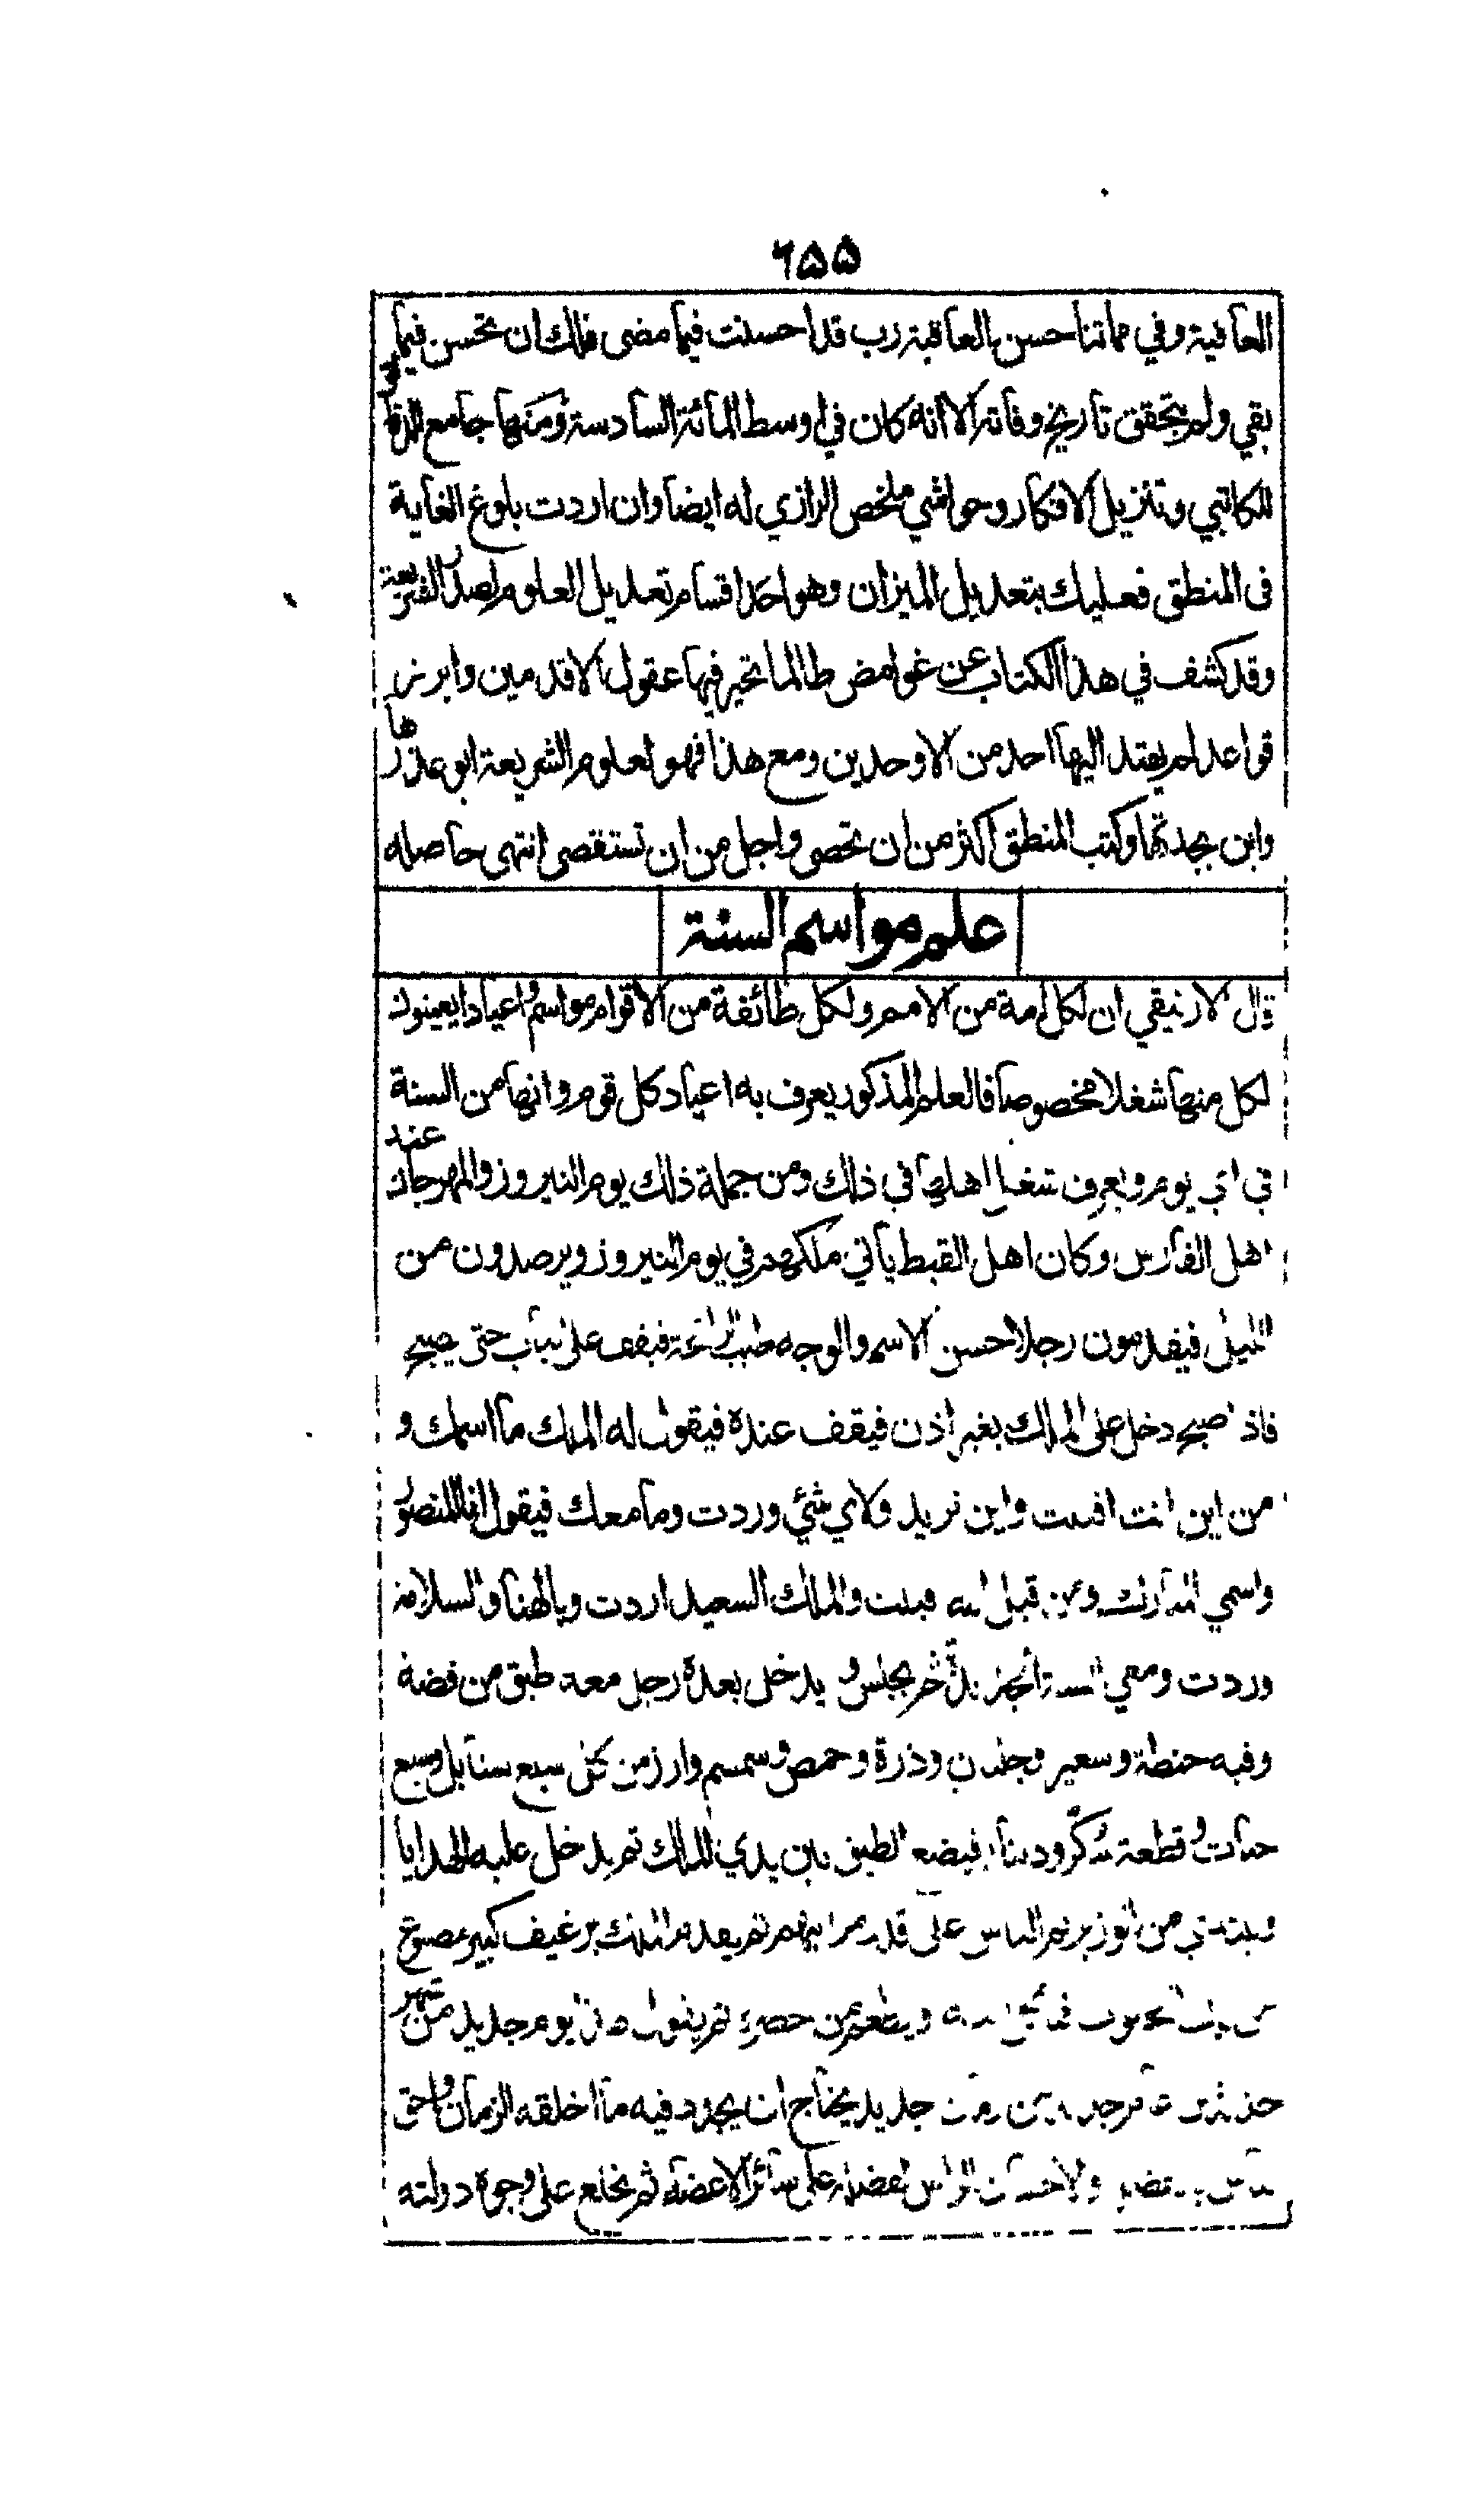 ٦٥٥
العافية وفي مماتنا حسن العاقبة رب قد احسنت فيما مضى فلك ان تحسن فيما
بقي ولم يتحقق تاريخ وفاته الا انه كان في اوسط المائة السادسة ومنها جامع الدقائق
للكاتبي وتنزيل الافكار وحواشي ملخص الرازي له ايضا وان اردت بلوغ الغاية
فى المنطق فعليك بتعديل الميزان وهو احد اقسام تعديل العلوم لصدر الشريعة
وقد كشف في هذا الكتاب عن غوامض طالما تحير فيها عقول الاقدمين وابرز
قواعد لم يهتد اليها احد من الاوحدين ومع هذا فهو لعلوم الشريعة ابو عذرها
وابن بجدتها وكتب المنطق اكثر من ان تحصى واجل من ان تستقصى انتهى حاصله
علم مواسم السنة
قال الارنيقي ان لكل امة من الامم ولكل طائفة من الاقوام مواسم واعيادا يعينون
لكل منها شغلا مخصوصا فالعلم المذكور يعرف به اعياد كل قوم وانها من السنة
في اي يوم ويعرف شغل اهلها في ذلك ومن جملة ذلك يوم النيروز والمهرجان عند
اهل الفارس وكان اهل القبط ياتي ملكهم في يوم النيروز ويرصدون من
الليل فيقدمون رجلا حسن الاسم والوجه طيب الرائحة فيقف على الباب حتى يصبح
فاذا اصبح دخل على الملك بغير اذن فيقف عنده فيقول له الملك ما اسمك و
من اين انت اقبلت واين تريد ولاي شئي وردت وما معك فيقول انا المنصور
واسمي المبارك ومن قبل الله اقبلت والملك السعيد اردت وبالهنا والسلامة
وردت ومعي السنة الجديدة ثم يجلس و يدخل بعده رجل معه طبق من فضة
وفيه حنطة وشعير وجلبان وذرة وحمص وسمسم وارز من كل سبع سنابل وسبع
حبات وقطعة سكر ودينار فيضع الطبق بين يدي الملك ثم يدخل عليه الهدايا
ويبتدئ من الوزير ثم الناس على قدر مراتبهم ثم يقدم الملك برغيف كبير مصنوع
من تلك الحبوب فياكل منه ويطعم من حضره ثم يقول هذا يوم جديد من شهر
جديد من عام جديد من زمان جديد يحتاج ان يجدد فيه ما اخلقه الزمان واحق
الناس بالفضل والاحسان الراس لفضله على سائر الاعضاء ثم يخلع على وجوه دولته